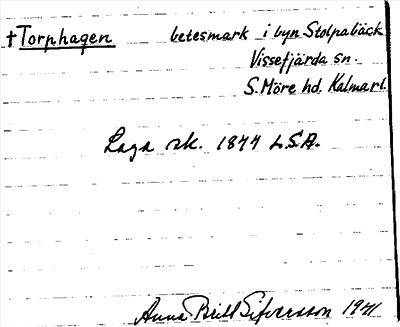 †Torphagen betesmark i byn Stolpabäck
Vissefjärda sn.
S. Möre hd. Kalmar l.
Laga sk. 1877 L.S.A.
Anna Britt Sifversson 1941